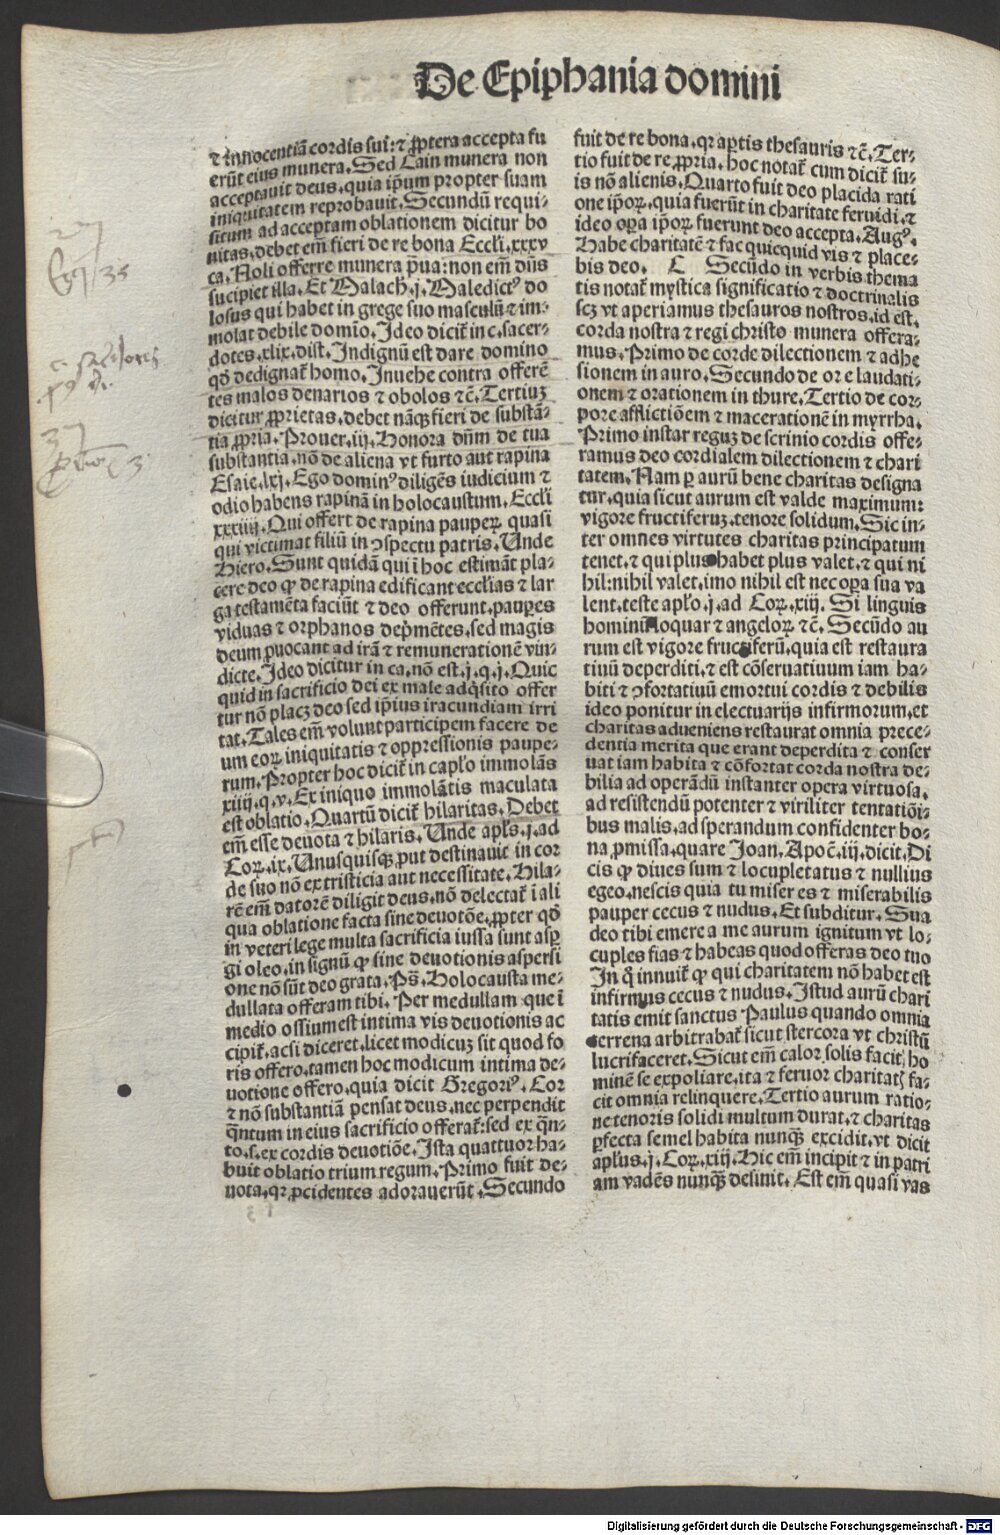 De Epiphania domini
⁊ innocentiā cordis sui: ⁊ ꝓptera accepta fu
erūt eius munera. Sed Cain munera non
acceptauit deus, quia ip̄um propter suam
iniquitatem reprobauit. Secundū requi⸗
situm ad acceptam oblationem dicitur bo
nitas, debet em̄ fieri de re bona Eccl̄i. xxxv
ca. Noli offerre munera p̄ua: non em̄ dn̄s
suscipiet illa. Et Malach̄. j. Maledictꝰ do
losus qui habet in grege suo masculū ⁊ im⸗
molat debile domīo. Ideo dicit̄ in c. sacer⸗
dotes. xlix. dist. Indignū est dare domino
qd̄ dedignat̄ homo. Inuehe contra offerē
tes malos denarios ⁊ obolos ⁊c̄. Tertiuꝫ
dicitur ꝓprietas, debet nāqꝫ fieri de substā⸗
tia ꝓpria. Prouer. iij. Honora dn̄m de tua
substantia, nō de aliena vt furto aut rapina
Esaie. lxj. Ego dominꝰ diligēs iudicium ⁊
odio habens rapinā in holocaustum. Eccl̄i
xxxiiij. Qui offert de rapina pauperꝝ quasi
qui victimat filiū in ꝯspectu patris. Unde
Hiero. Sunt quidā qui ī hoc estimāt pla⸗
cere deo ꝙ de rapina edificant eccl̄ias ⁊ lar
ga testamēta faciūt ⁊ deo offerunt, pauꝑes
viduas ⁊ orphanos dep̄mētes, sed magis
deum ꝓuocant ad irā ⁊ remunerationē vin⸗
dicte. Ideo dicitur in ca. nō est. j. q. j. Quic
quid in sacrificio dei ex male adq̄sito offer
tur nō placꝫ deo sed ip̄ius iracundiam irri
tat. Tales em̄ volunt participem facere de
um eorꝝ iniquitatis ⁊ oppressionis paupe⸗
rum. Propter hoc dicit̄ in capl̄o immolās
xiiij. q. v. Ex iniquo immolātis maculata
est oblatio. Quartū dicit̄ hilaritas. Debet
em̄ esse deuota ⁊ hilaris. Unde apl̄s. j. ad
Corꝝ. ix. Unusquisqꝫ put destinauit in cor
de suo nō ex tristicia aut necessitate. Hila⸗
rē em̄ datorē diligit deus, nō delectat̄ ī ali
qua oblatione facta sine deuotōe, ꝓpter qd̄
in veteri lege multa sacrificia iussa sunt asꝑ
gi oleo, in signū ꝙ sine deuotionis aspersi
one nō sūt deo grata. Ps̄. Holocausta me⸗
dullata offeram tibi. Per medullam que ī
medio ossium est intima vis deuotionis ac
cipit̄, acsi diceret, licet modicuꝫ sit quod fo
ris offero, tamen hoc modicum intima de⸗
uotione offero, quia dicit Gregoriꝰ. Cor
⁊ nō substantiā pensat deus, nec perpendit
q̄ntum in eius sacrificio offerat̄: sed ex q̄n⸗
to. s. ex cordis deuotiōe. Ista quattuor ha⸗
buit oblatio trium regum. Primo fuit de⸗
uota, qꝛ ꝓcidentes adorauerūt. Secundo
fuit de re bona, qꝛ aꝑtis thesauris ⁊c̄. Ter⸗
tio fuit de re ꝓpria, hoc notat̄ cum dicit̄ su⸗
is nō alienis. Quarto fuit deo placida rati
one ip̄oꝝ, quia fuerūt in charitate feruidi, ⁊
ideo oꝑa ip̄oꝝ fuerunt deo accepta. Augꝰ.
Habe charitatē ⁊ fac quicquid vis ⁊ place⸗
bis deo. C Secūdo in verbis thema
tis notat̄ mystica significatio ⁊ doctrinalis
scꝫ vt aperiamus thesauros nostros, id est,
corda nostra ⁊ regi christo munera offera⸗
mus. Primo de corde dilectionem ⁊ adhe
sionem in auro. Secundo de ore laudati⸗
onem ⁊ orationem in thure. Tertio de cor⸗
pore afflictiōem ⁊ macerationē in myrrha.
Primo instar reguꝫ de scrinio cordis offe⸗
ramus deo cordialem dilectionem ⁊ chari
tatem. Nam ꝑ aurū bene charitas designa
tur, quia sicut aurum est valde maximum:
vigore fructiferuꝫ. tenore solidum. Sic in⸗
ter omnes virtutes charitas principatum
tenet, ⁊ qui plus habet plus valet, ⁊ qui ni
hil: nihil valet, imo nihil est nec oꝑa sua va
lent, teste apl̄o. j. ad Corꝝ. xiij. Si linguis
hominū loquar ⁊ angelorꝝ ⁊c̄. Secūdo au
rum est vigore fructiferū, quia est restaura
tiuū deperditi, ⁊ est cōseruatiuum iam ha⸗
biti ⁊ ꝯfortatiuū emortui cordis ⁊ debilis
ideo ponitur in electuarijs infirmorum, et
charitas adueniens restaurat omnia prece⸗
dentia merita que erant deperdita ⁊ conser
uat iam habita ⁊ cōfortat corda nostra de⸗
bilia ad operādū instanter opera virtuosa,
ad resistendū potenter ⁊ viriliter tentatiōi⸗
bus malis, ad sperandum confidenter bo⸗
na ꝓmissa, quare Joan. Apoc̄. iij. dicit. Di
cis ꝙ diues sum ⁊ locupletatus ⁊ nullius
egeo, nescis quia tu miser es ⁊ miserabilis
pauper cecus ⁊ nudus. Et subditur. Sua
deo tibi emere a me aurum ignitum vt lo⸗
cuples fias ⁊ habeas quod offeras deo tuo
In q̊ innuit̄ ꝙ qui charitatem nō habet est
infirmus cecus ⁊ nudus. Istud aurū chari
tatis emit sanctus Paulus quando omnia
terrena arbitrabat̄ sicut stercora vt christū
lucrifaceret. Sicut em̄ calor solis facit ho
minē se expoliare, ita ⁊ feruor charitatꝭ fa⸗
cit omnia relinquere. Tertio aurum ratio⸗
ne tenoris solidi multum durat, ⁊ charitas
ꝑfecta semel habita nunqꝫ̄ excidit, vt dicit
apl̄us. j. Corꝝ. xiij. Hic em̄ incipit ⁊ in patri
am vadēs nunqꝫ̄ desinit. Est em̄ quasi vas
Digitalisierung gefördert durch die Deutsche Forschungsgemeinschaft - DFG